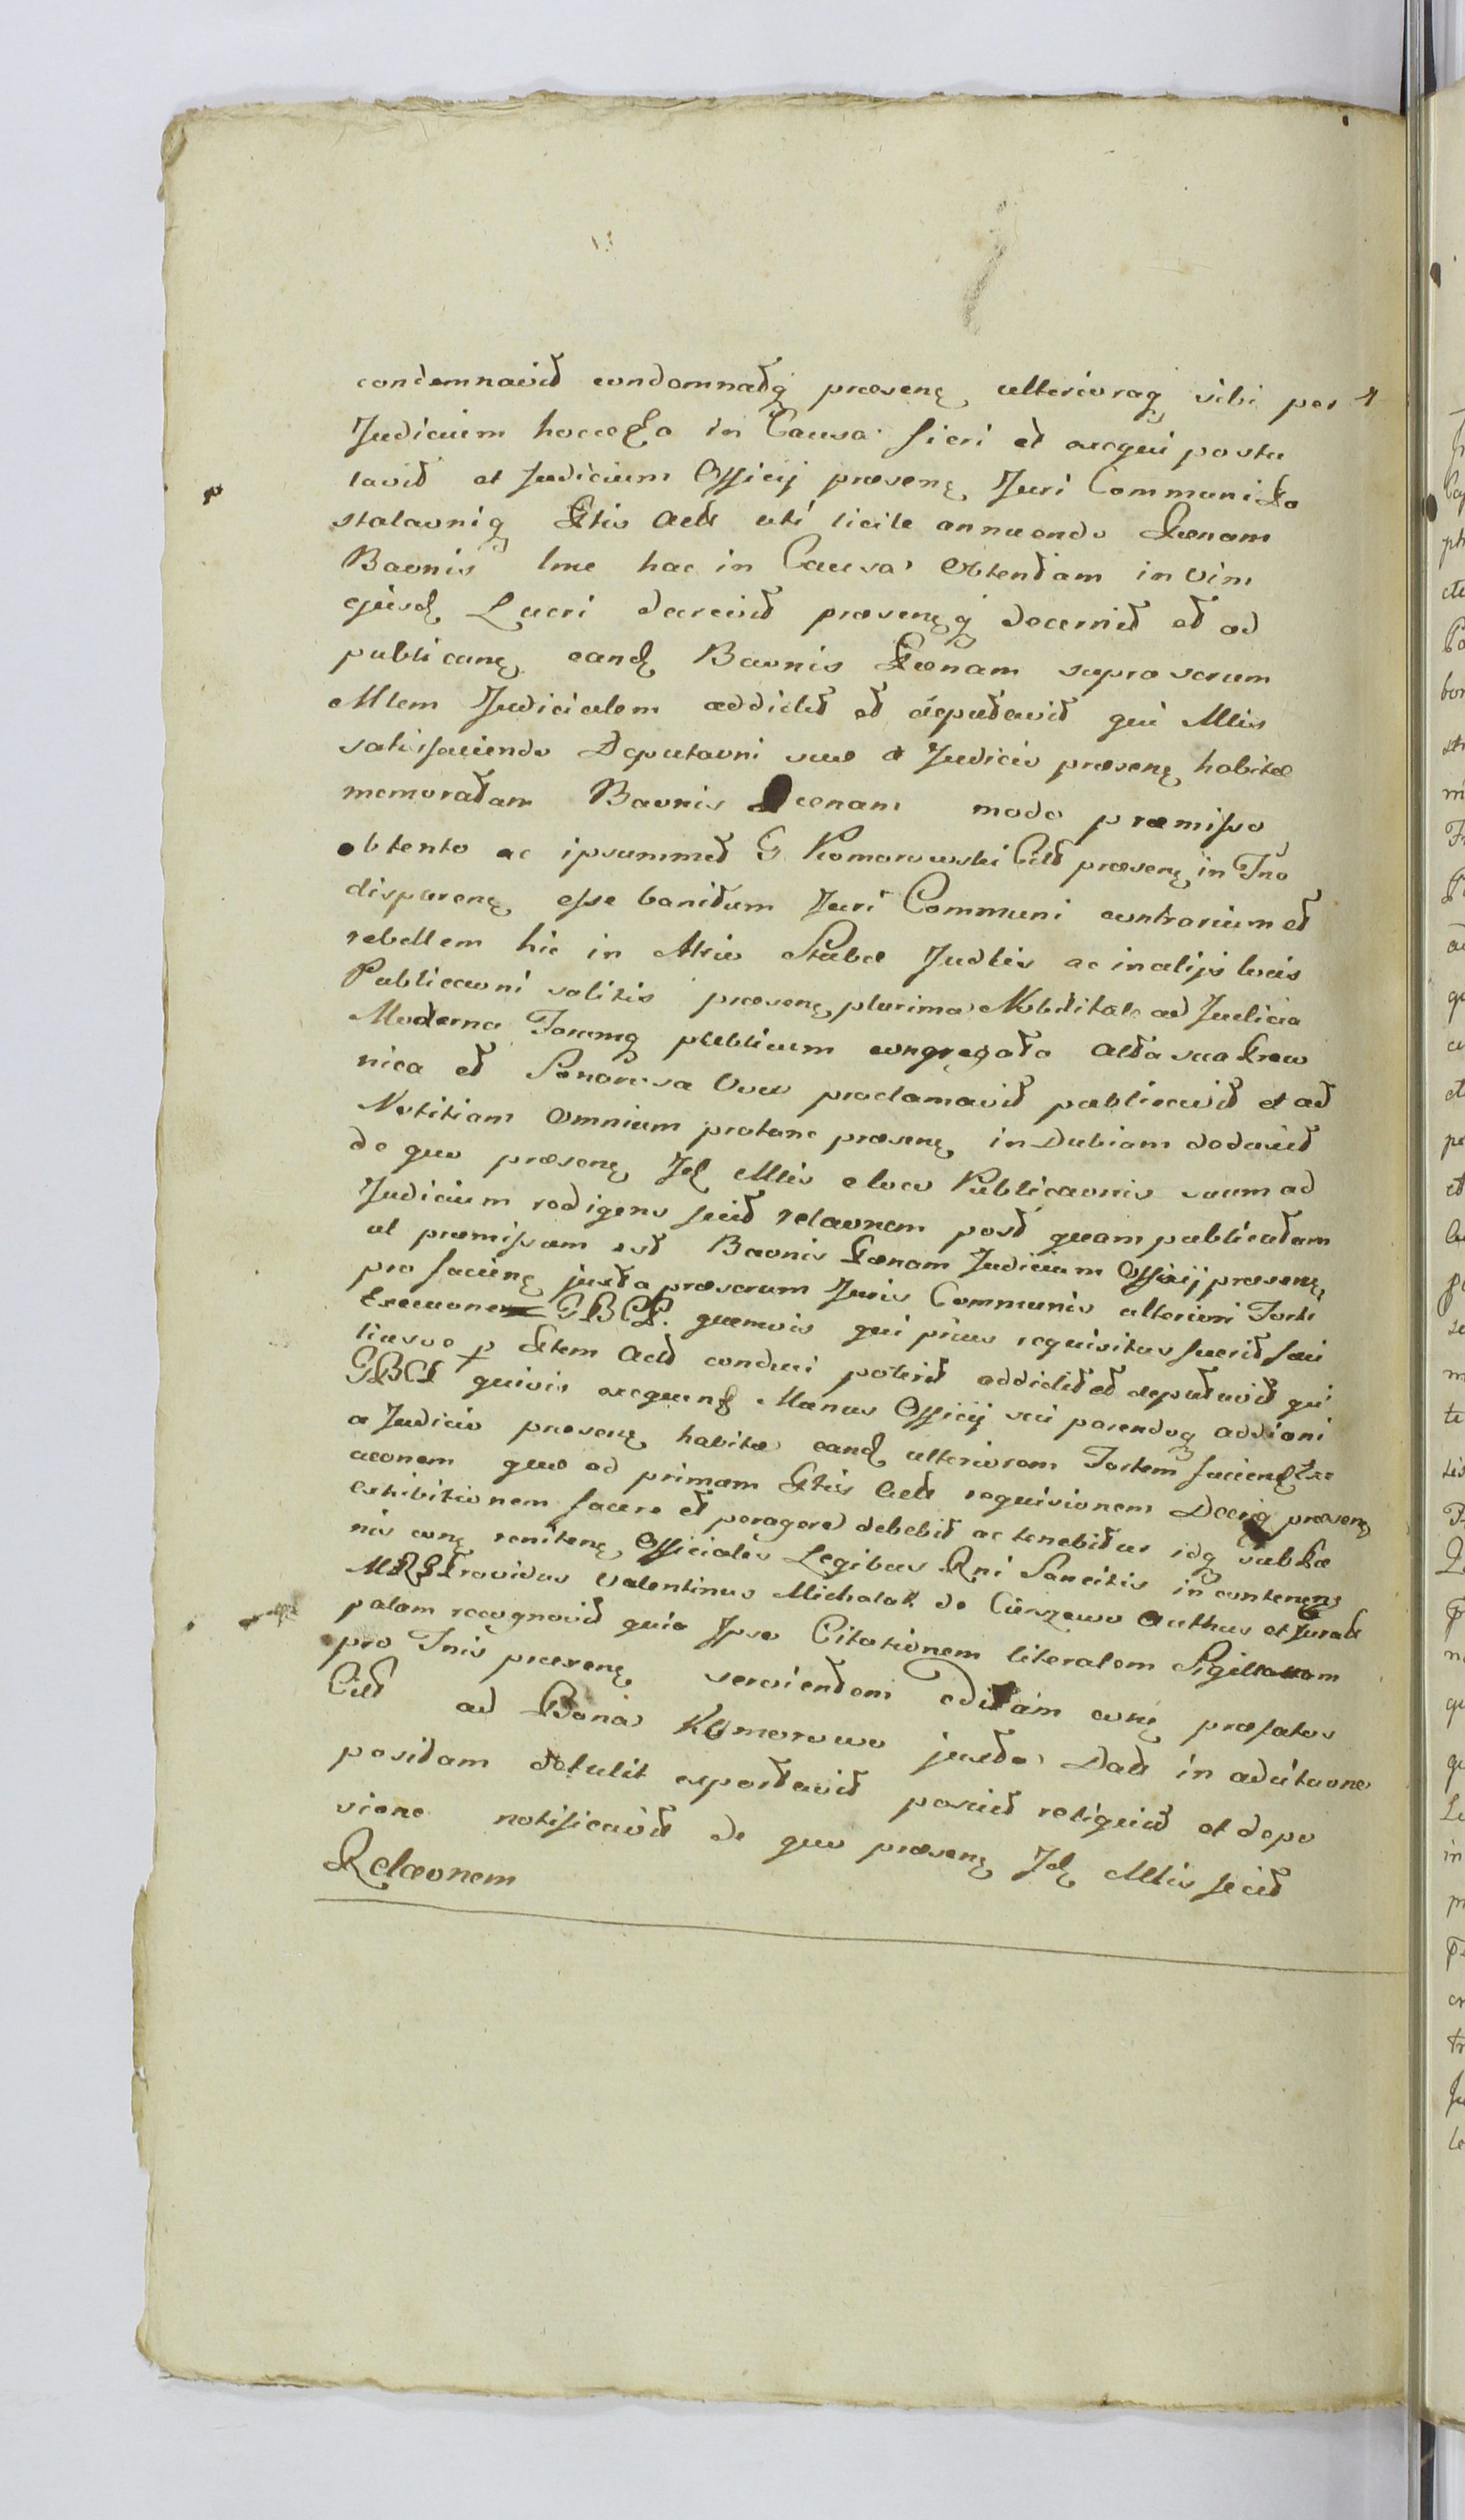 condemnavit condemnatq præsenę ulterioraq sibi per
Judicium hocce in Causa fieri et exequi postu
lavit et Judicium Officij præsenę Juri Communi Po
stulaoniq Ptis Actt uti licite annuendo Pœnam
Baonis lme hac in Causa obtentam in vim
ejusd Lucri decrevit præsenęq decernit et ad
publicanę eand Baonis Pœnam supra scrum
Mlem Judicialem addidit et deputavit qui Mlis
satisfaciendo Deputaoni suæ a Judicio præsenę habitæ
memoratam Baonis Pœnam modo præmisso
obtento ac ipsummet G. Komorowski Citt præsenę in Tno
disparenę esse banitum Juri Communi contrarium et
rebellem hic in Atrio Stubæ Judlis ac in alijs locis
Publicaoni solitis præsenę plurima Nobilitate ad Judicia
Moderna Forumq publicum congregata alta sua
nica et Sonorosa Voce proclamavit publicavit et ad
Notitiam Omnium protunc præsenę in Dubiam deduxit
de quo præsenę Id Mlis e loco Publicaonis suum ad
Judicium redigens fecit relaonem post quam publicatam
ut præmissum est Baonis Pœnam Judicium Officij præsenę
pro facienę juxta præscrum Juris Communis ulteriori Forti
Execuone GBCP. quemvis qui prius requisitus fuerit seu
liusve p Ptem Actt conduci poterit addidit et deputavit qui
GBCP quivis exequend Munus Officij sui parendoq addioni
a Judicio præsenę habitæ eand ulteriorem Fortem faciend Exe
cuonem quo ad primam Ptis Actt requisionem Decriq præsenę
exhibitionem facere et peragere debebit ac tenebitur idq sub Pœ
nis conę renitenę Officiales Legibus Rni Sancitis in contenenę
Providus Valentinus Michalak de Ciurzewo authus et Juratt
palam recognovit quia Ipse Citationem literalem Sigillatam
pro Tnis præsenę servientem editam conę præfatos
Citt ad Bona Komorowo juxta Datt in adcitaone
positam detulit asportavit posuit reliquit et depo
sione notificavit de quo præsenę Id Mlis fecit
Relaonem